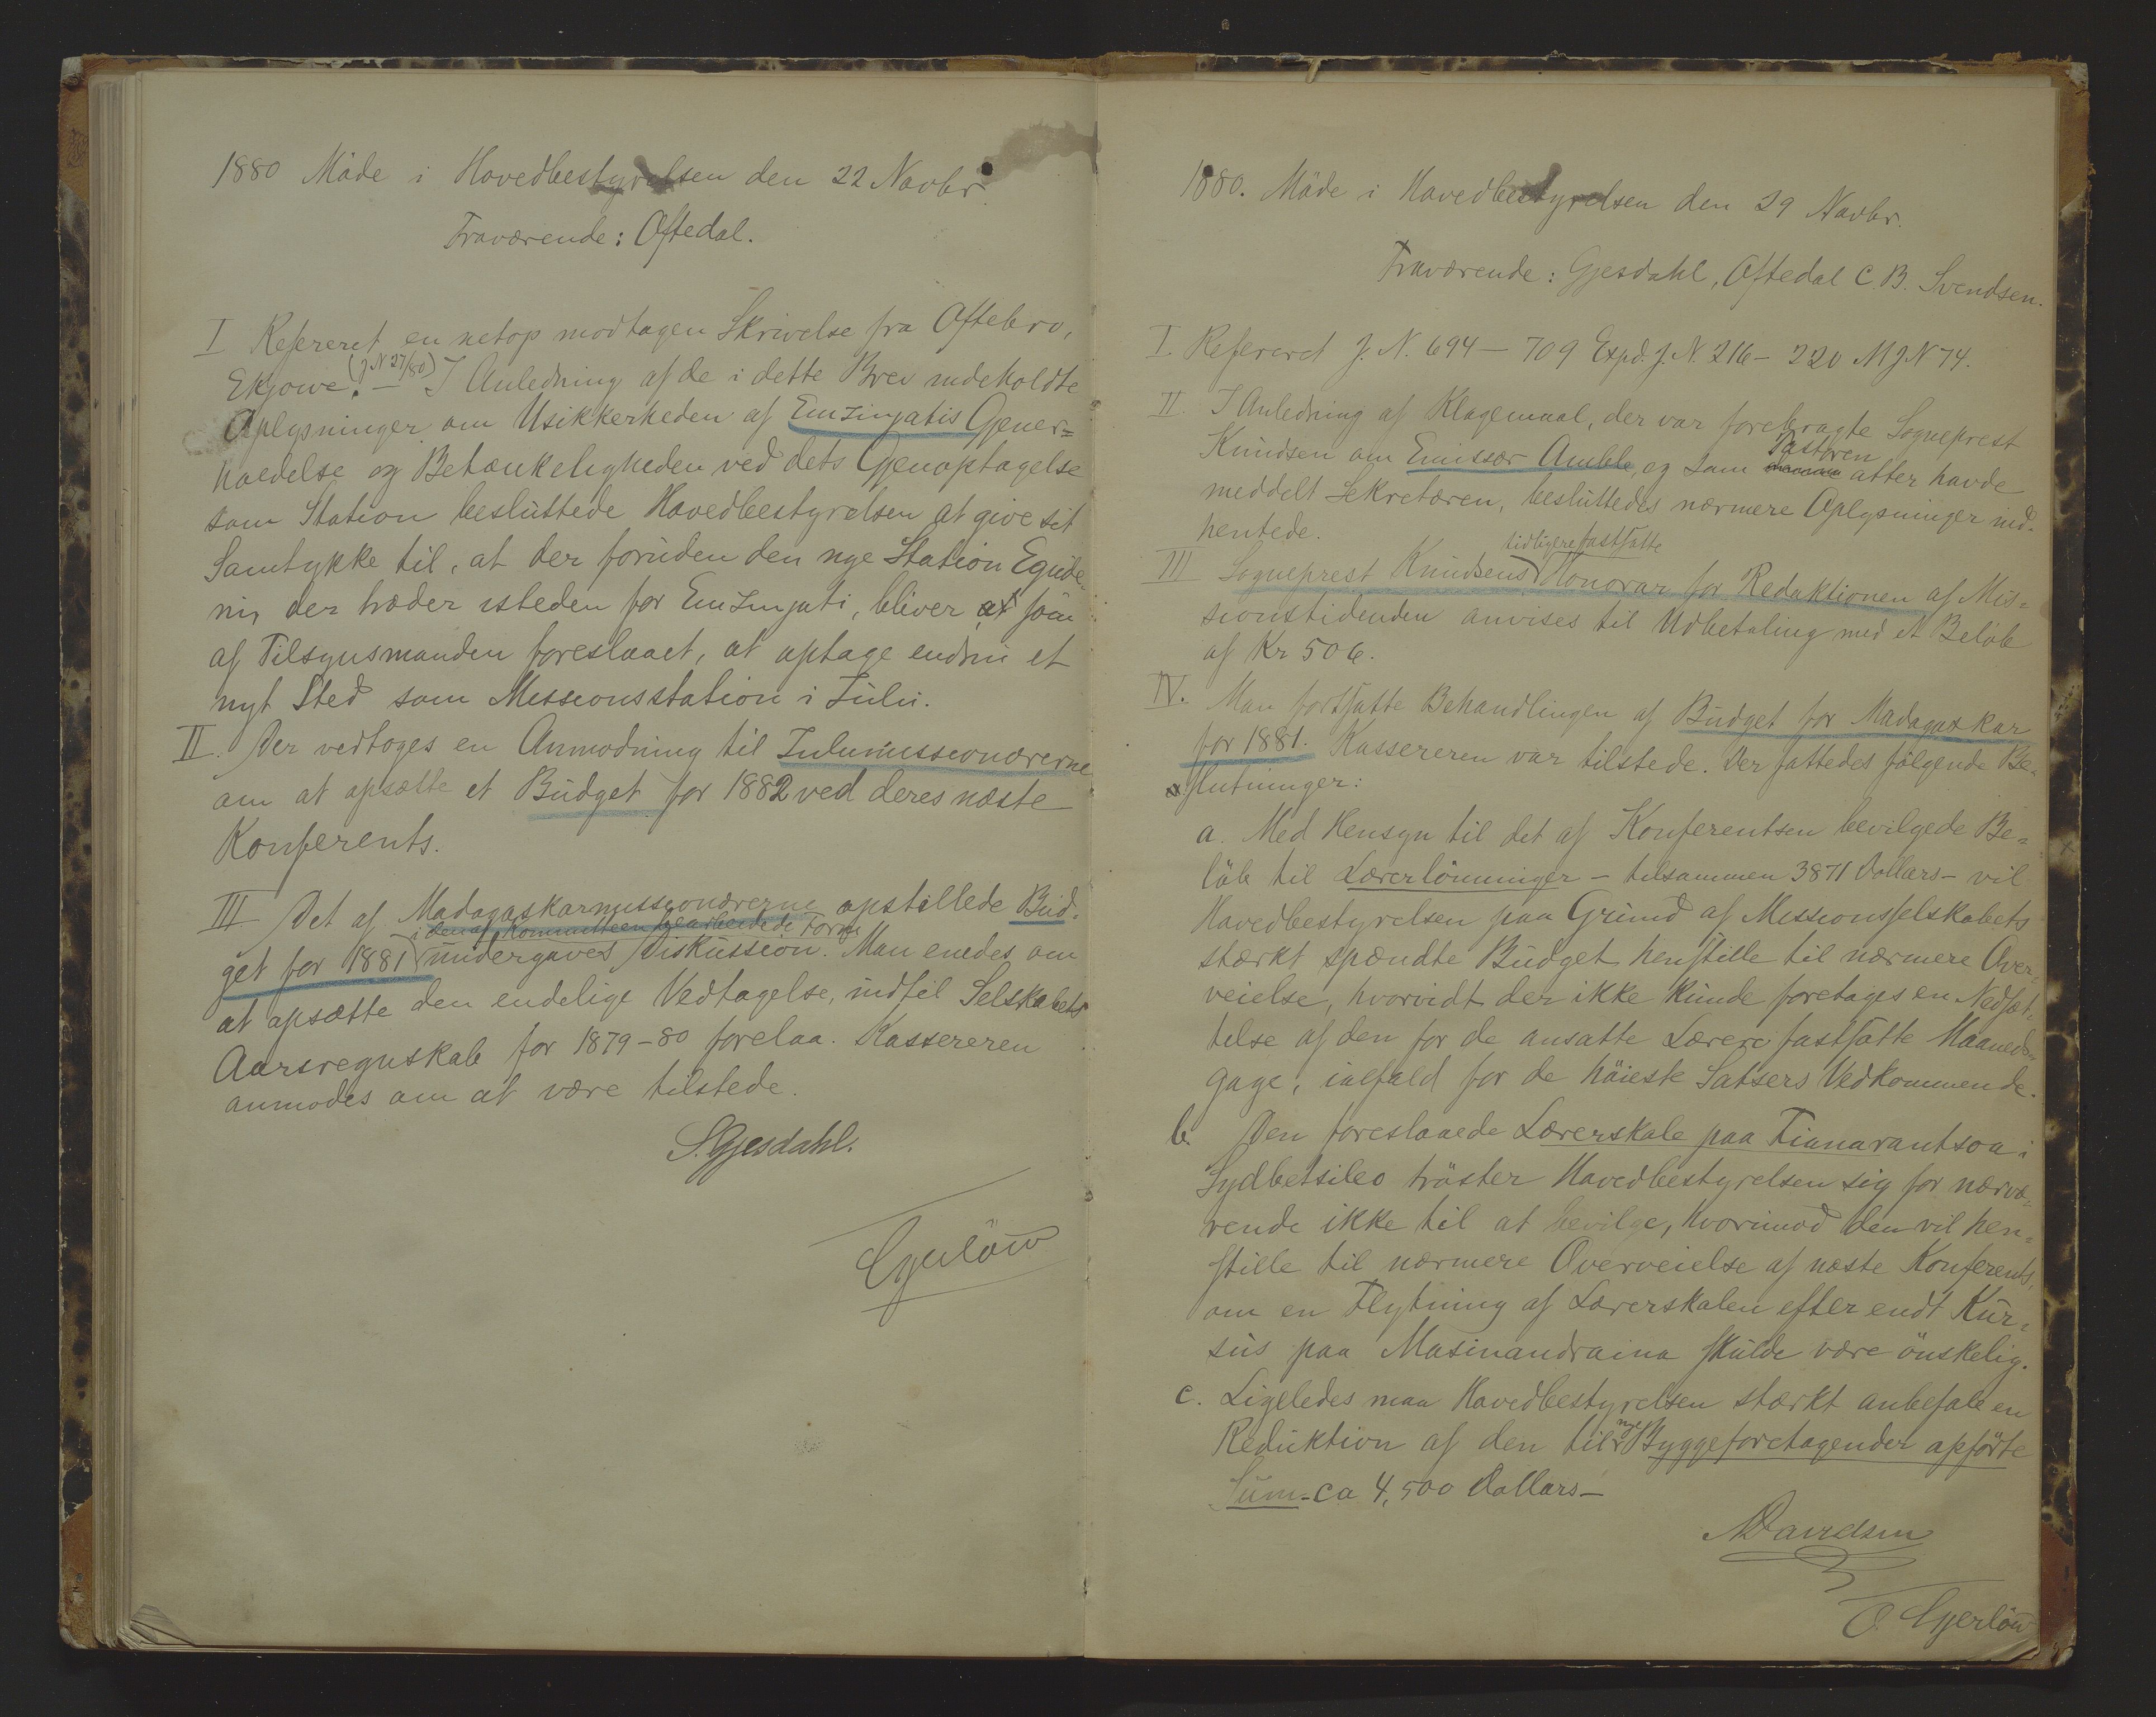 1880 Möde i Hovedbestyrelsen den 22 Novbr.
Fraværende: Oftedal.
I Refereret en netop modtagen Skrivelse fra Oftebro,
Ekjowe. (J N 27/80) — I Anledning af de i dette Brev indeholdte
Oplysninger om Usikkerheden af Emzinjatis Gjener=
hvedelse og Betænkeligheden ved dets Gjenoptagelse
som Station besluttede Hovedbestyrelsen at give sit
Samtykke til, at der foruden den nye Station Equde
ni, der træder isteden for Emzinjati, bliver at som
af Tilsynsmanden foreslaaet, at optage endnu et
nyt Sted som Missionsstation i Zulu.
II. Der vedtoges en Anmodning til Zulumissionærerne
om at opsætte et Budget for 1882 ved deres næste
Konferents.
III Det af Madagaskarmissionærerne opstillede Bud-
i den af Kommitteen bearbeidede Form
get for 1881 undergaves Diskussion. Man enedes om
at opsætte den endelige Vedtagelse, indtil Selskabets
Aarsregnskab for 1879-80 forelaa. Kassereren
anmodes om at være tilstede.
S. Gjesdahl.
Gjerløw
1880. Möde i Hovedbestyrelsen den 29 Novbr.
Fraværende: Gjesdahl, Oftedal C. B. Svendsen.
I. Refereret J. N. 694 — 709 Expd. J. N. 216 — 220 M J N 74.
II. I Anledning af Klagemaal, der var forebragte Sogneprest
Knudsen om Emissær Amble, og som Pastoren atter havde
meddelt Sekretæren, besluttedes nærmere Oplysninger ind-
hentede.
tidligere fastsatte
III Sogneprest Knudsens Honorar for Redaktionen af Mis=
sionstidenden anvises til Udbetaling med et Belöb
af Kr 506.
IV. Man fortsatte Behandlingen af Budget for Madagaskar
for 1881. Kassereren var tilstede. Der fattedes fölgende Be-
slutninger:
a. Med Hensyn til det af Konferentsen bevilgede Be=
löb til Lærerlönninger — tilsammen 3871 Dollars — vil
Hovedbestyrelsen paa Grund af Missionsselskabets
stærkt spændte Budget henstille til nærmere Over=
veielse, hvorvidt der ikke kunde foretages en Nedsæt-
telse af den for de ansatte Lærere fastsatte Maaneds
gage, ialfald for de höieste Satsers Vedkommende.
b. Den foreslaaede Lærerskole paa Fianarantsoa i
Sydbetsileo tröster Hovedbestyrelsen sig for nærvæ=
rende ikke til at bevilge, hvorimod den vil hen=
stille til nærmere Overveielse af næste Konferents,
om en Flytning af Lærerskolen efter endt Kur=
sus paa Masinandraina skulde være önskelig.
c. Ligeledes maa Hovedbestyrelsen stærkt anbefale en
Reduktion af den til nye Byggeforetagender opförte
Sum — ca 4,500 Dollars —
N Davidsen
O. Gjerløw